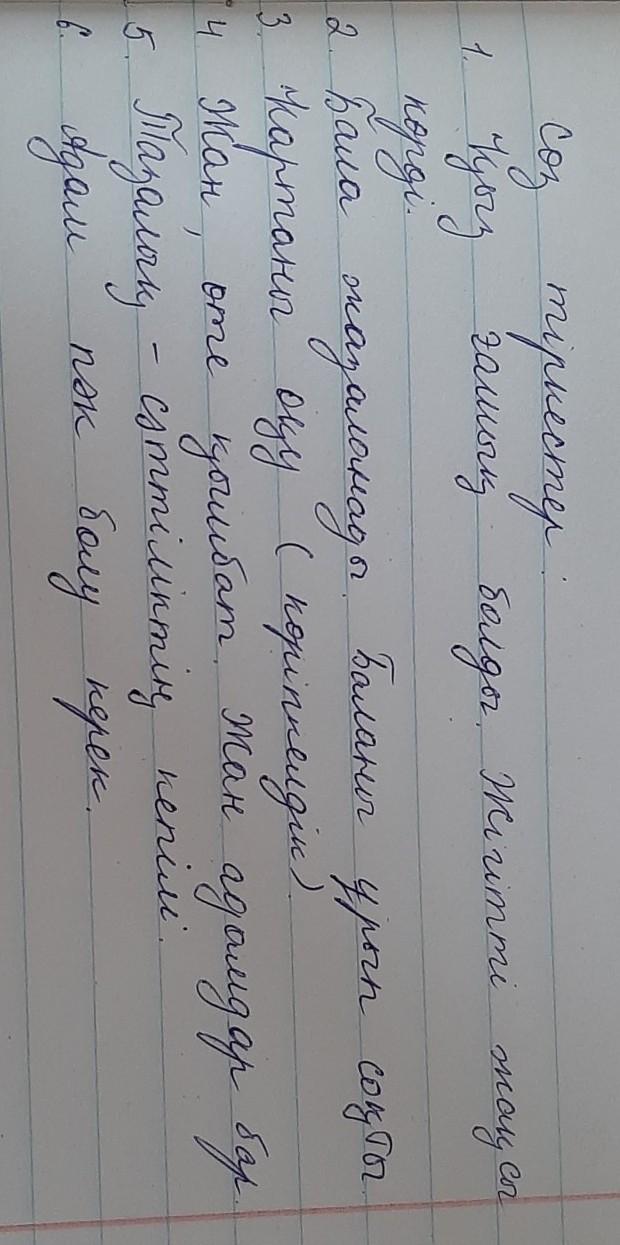 Сөз тіркестер.
1. Қыз ғашық болды. Жігітті жақсы
көрді.
2. Бала жазаланады. Баланы ұрып соқты.
3. Картаны оқу (көріпкелдік)
4. Жан, өте қымбат. Жан адамдар бар.
5. Тазалық - сүттіліктің кепілі.
6. Адам пәк болу керек.